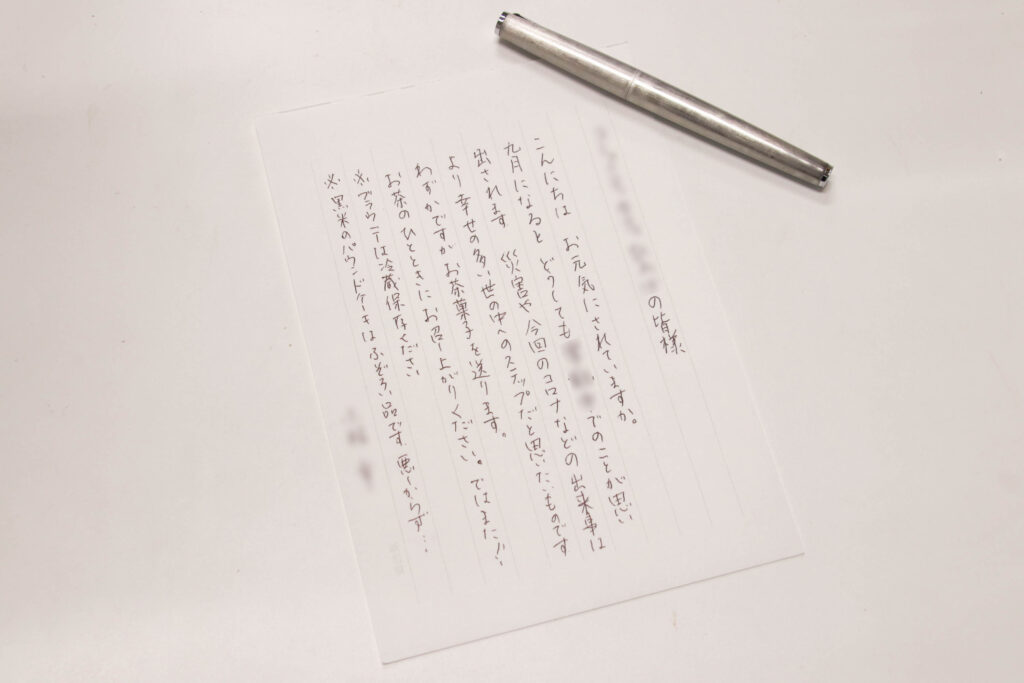 の皆様
こんにちは お元気にされていますか。
九月になると どうしても でのことが思い
出されます 災害や今回のコロナなどの出来事は
より幸せの多い世の中へのステップだと思いたいものです
わずかですが お茶菓子を送ります。
お茶のひとときに お召し上がりください。ではまた!!
※ブラウニーは冷蔵保存ください
※黒米のパウンドケーキはふぞろい品です 悪しからず…